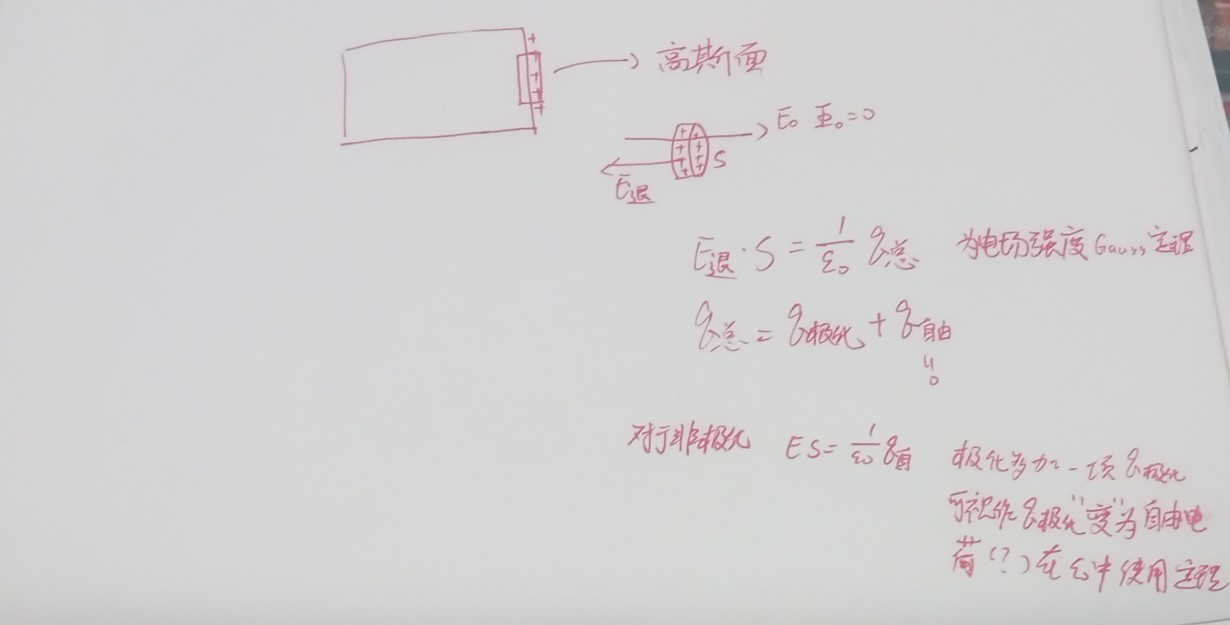 高斯面
E₀ Φ₀=0
S
E退
E退·S = 1/ε₀ q总 为电场强度Gauss定理
q总 = q极化 + q自由
0
对于非极化 ES = 1/ε₀ q自 极化多加一项q极化
可视作q极化"变"为自由电
荷(?)在ε₀中使用定理